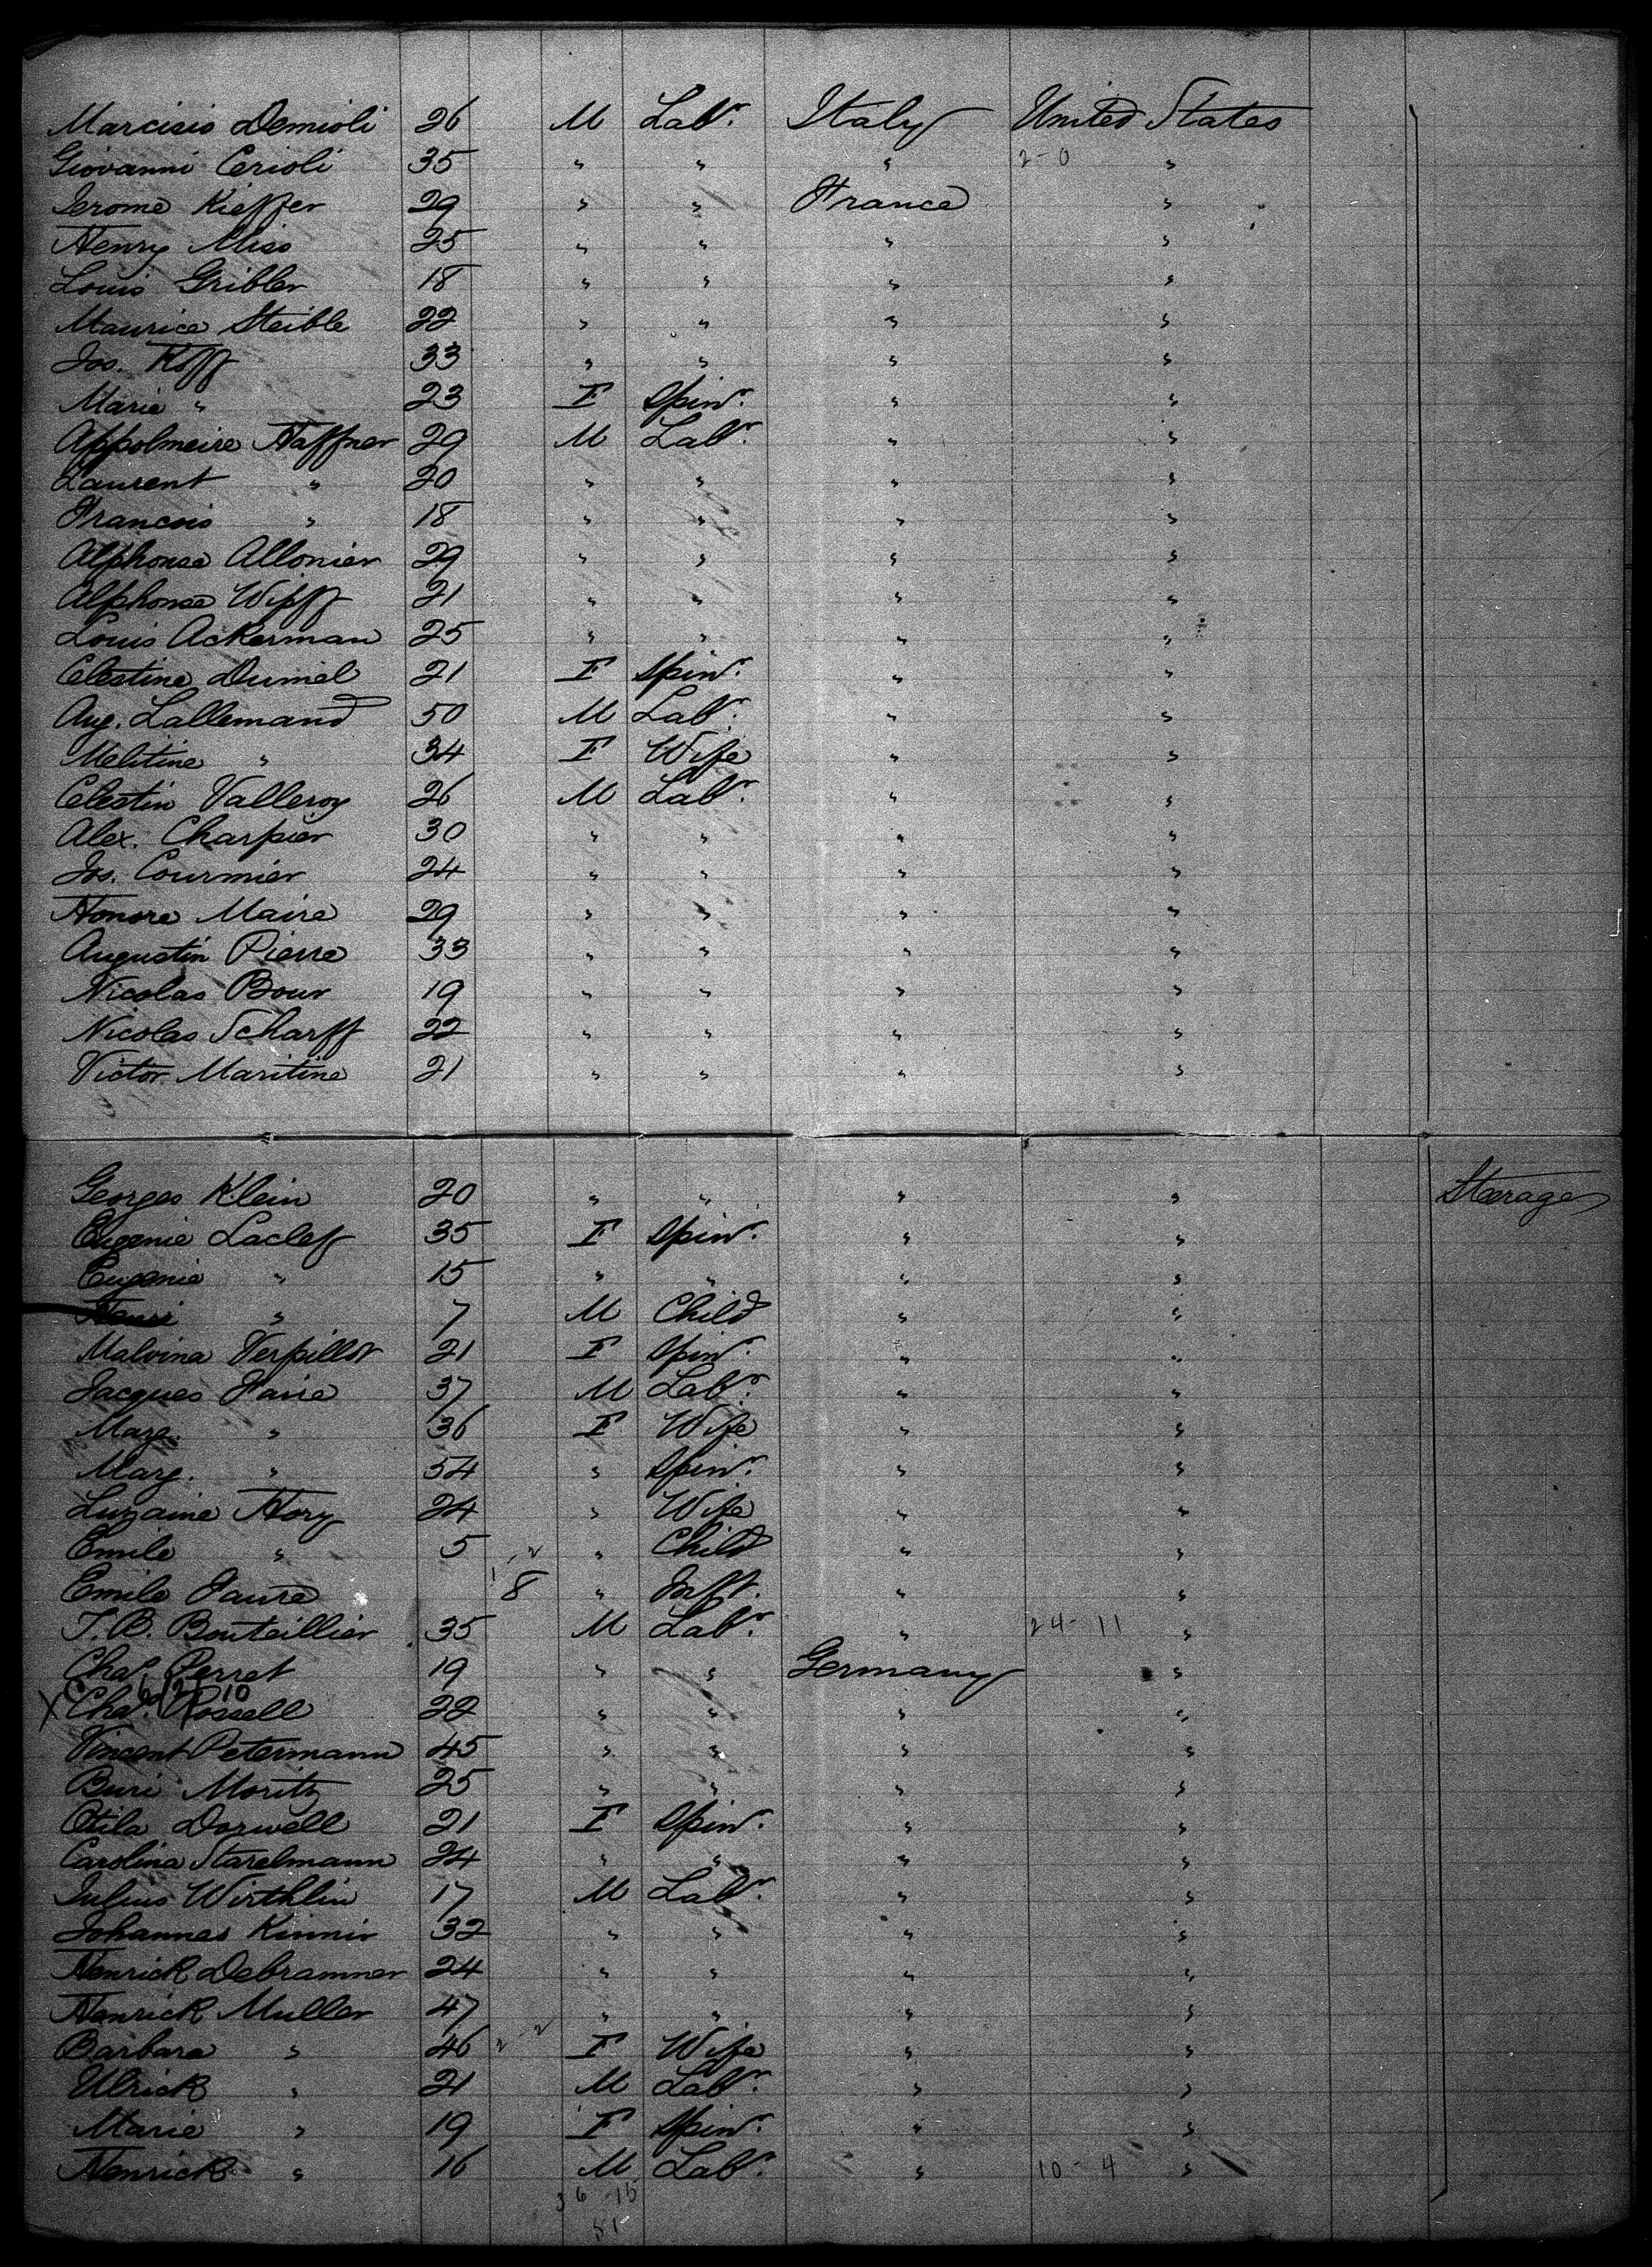 Marcisio Demioli 26 M Labr. Italy United States
Giovanni Cerioli 35 " " " 2-0 "
Jerome Kieffer 29 " " France "
Henry Miss 25 " " " "
Louis Gribler 18 " " " "
Maurice Steible 22 " " " "
Jos. Koff 33 " " " "
Marie " 23 F Spinr. " "
Appolineire Haffner 29 M Labr. " "
Laurent " 20 " " " "
Francois " 18 " " " "
Alphonse Allonier 29 " " " "
Alphonse Wipff 21 " " " "
Louis Ackerman 25 " " " "
Celestine Dumel 21 F Spinr. " "
Aug. Lallemand 50 M Labr. " "
Melitine " 34 F Wife " "
Celestin Valleroy 26 M Labr. " "
Alex. Charpier 30 " " " "
Jos. Courmier 24 " " " "
Honore Maire 29 " " " "
Augustin Pierre 33 " " " "
Nicolas Bour 19 " " " "
Nicolas Scharff 22 " " " "
Victor Maritine 21 " " " "
Georges Klein 20 " " " " Steerage
Eugenie Laclef 35 F Spinr. " "
Eugenie " 15 " " " "
Henri " 7 M Child " "
Malvina Verpillot 21 F Spinr. " "
Jacques Faure 37 M Labr. " "
Marg. " 36 F Wife " "
Marg. " 54 " Spinr. " "
Luzaine Hory 24 " Wife " "
Emile " 5 " Child " "
Emile Faure 8 " Inft. " "
J. B. Bouteillier 35 M Labr. " 24-11 "
Chas. Perret 19 " " Germany "
X Chas. Rossell 22 " " " "
Vincent Petermann 45 " " " "
Buri Moritz 25 " " " "
Otila Dorwell 21 F Spinr. " "
Carolina Starelmann 24 " " " "
Julius Wirthlin 17 M Labr. " "
Johannes Kinnir 32 " " " "
Henrick Debramner 24 " " " "
Henrick Muller 47 " " " "
Barbara " 46 F Wife " "
Ulrick " 21 M Labr. " "
Marie " 19 F Spinr. " "
Henrick " 16 M Labr. " 10-4 "
36 15
51